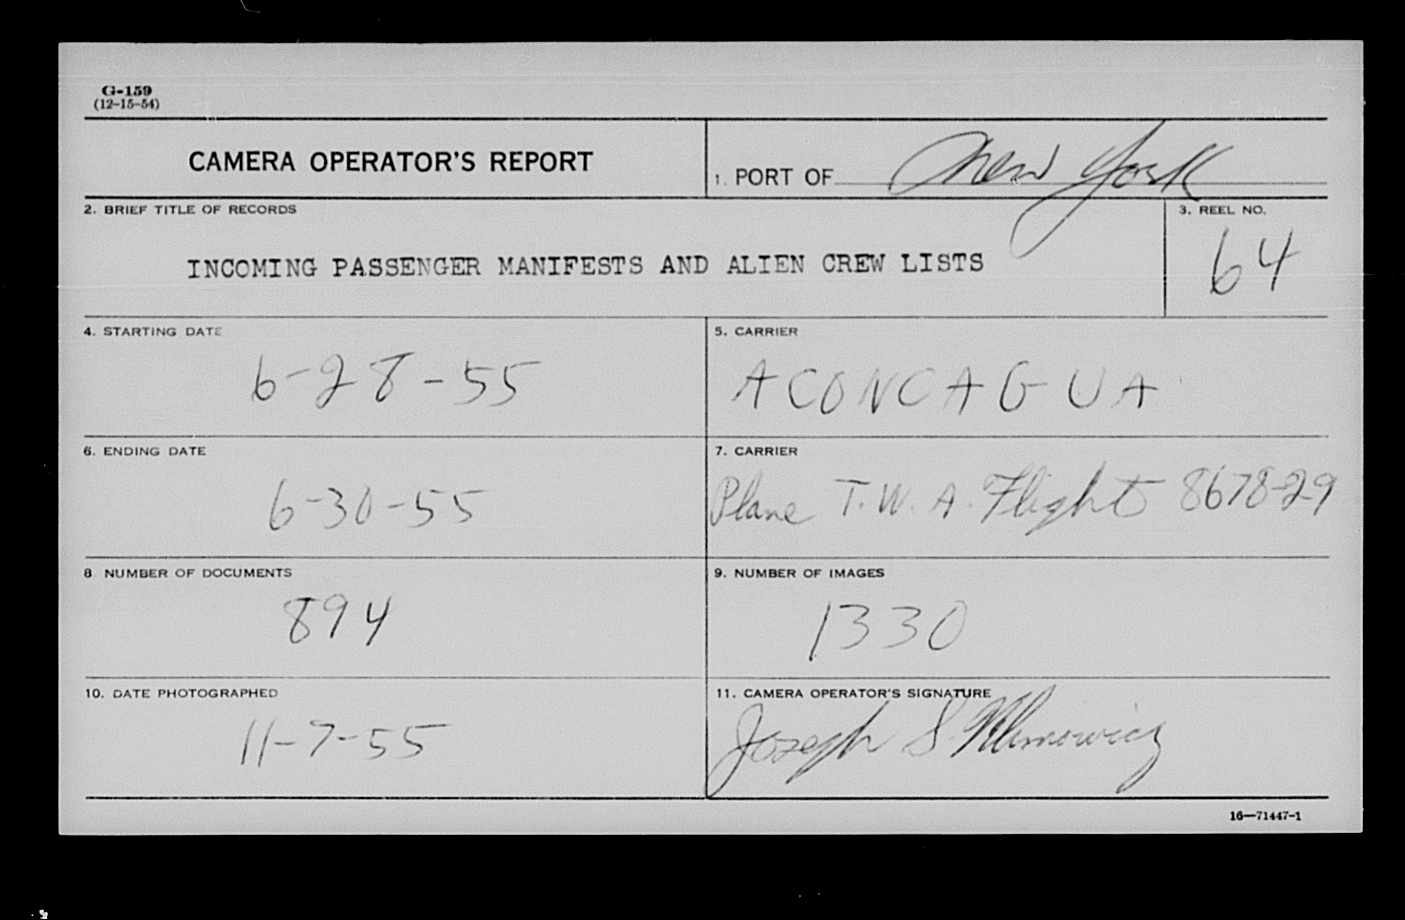 G-159
(12-15-54)
CAMERA OPERATOR'S REPORT
1. PORT OF New York
2. BRIEF TITLE OF RECORDS
INCOMING PASSENGER MANIFESTS AND ALIEN CREW LISTS
3. REEL NO.
64
4. STARTING DATE
6-28-55
5. CARRIER
ACONCAGUA
6. ENDING DATE
6-30-55
7. CARRIER
Plane T.W.A. Flight 8678-29
8 NUMBER OF DOCUMENTS
894
9. NUMBER OF IMAGES
1330
10. DATE PHOTOGRAPHED
11-7-55
11. CAMERA OPERATOR'S SIGNATURE
Joseph S.
16—71447-1